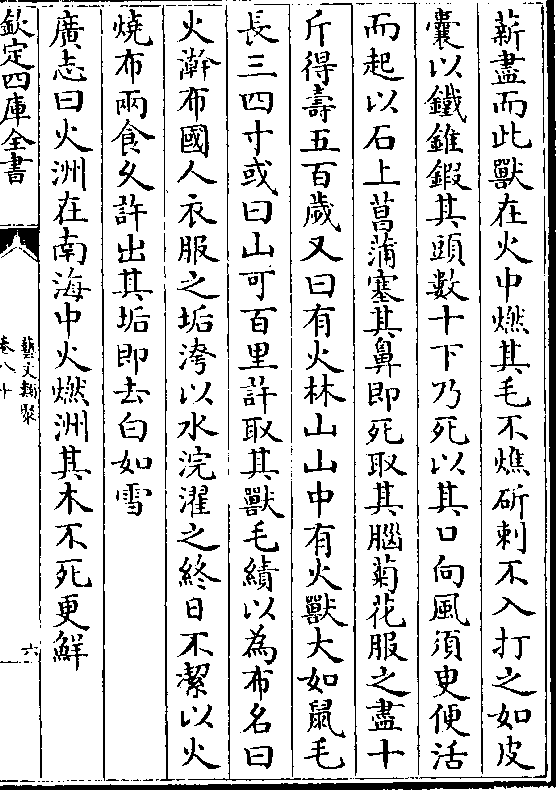 薪盡而此獸在火中燃其毛不燋斫刺不入打之如皮
囊以鐵錐鍛其頭數十下乃死以其口向風須㬰便活
而起以石上菖蒲塞其鼻即死取其腦菊花服之盡十
斤得壽五百歲又曰有火林山山中有火獸大如鼠毛
長三四寸或曰山可百里許取其獸毛績以為布名曰
火澣布國人衣服之垢洿以水浣濯之終日不潔以火
燒布兩食久許出其垢即去白如雪
廣志曰火洲在南海中火燃洲其木不死更鮮
欽定四庫全書
藝文類聚
卷八十
六